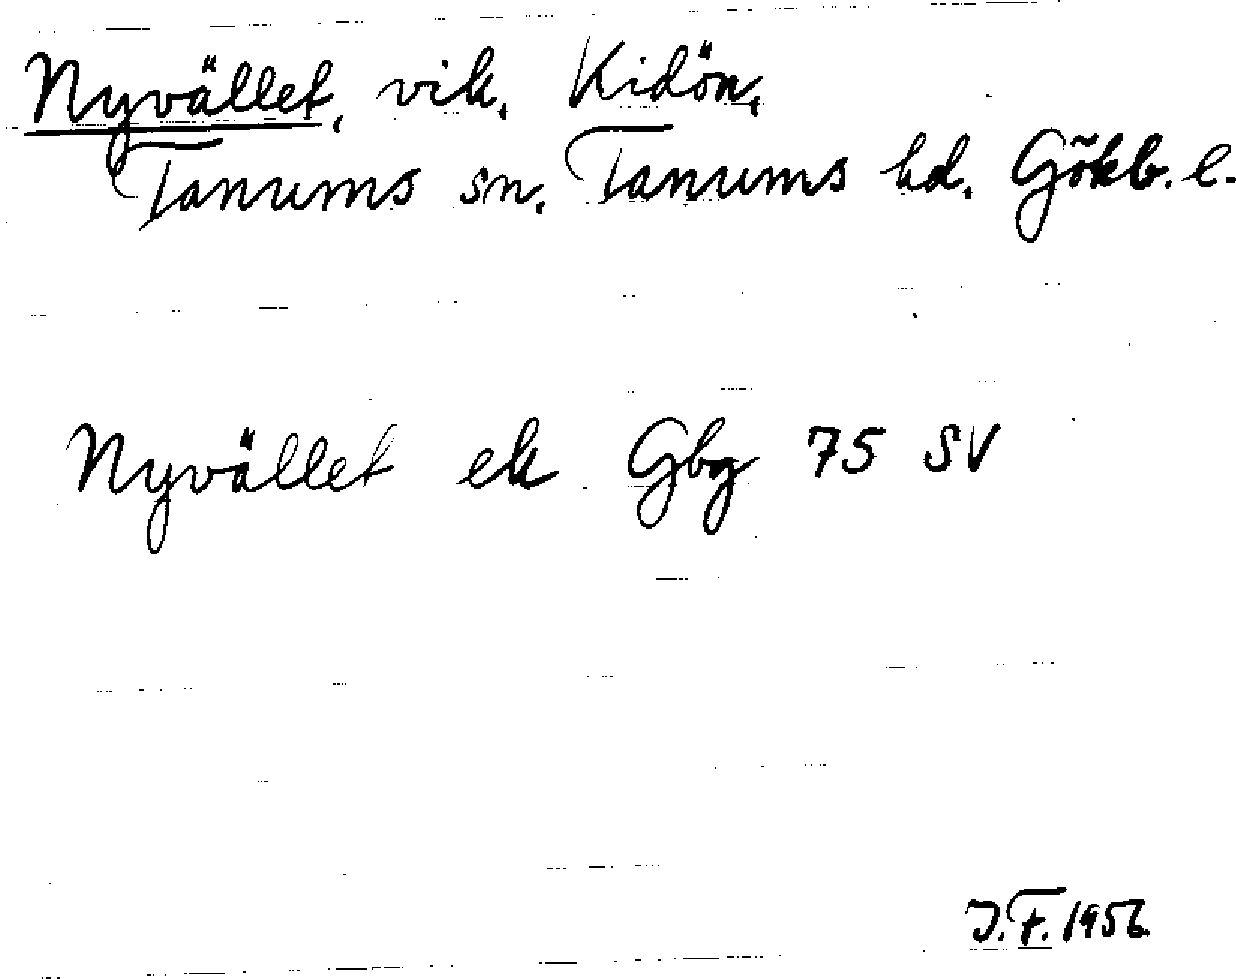 Nyvället, vik, Kidön,
Tanums sn. Tanums hd. Gökb. l.
Nyvället ek Gbg 75 SV
J.F. 1956